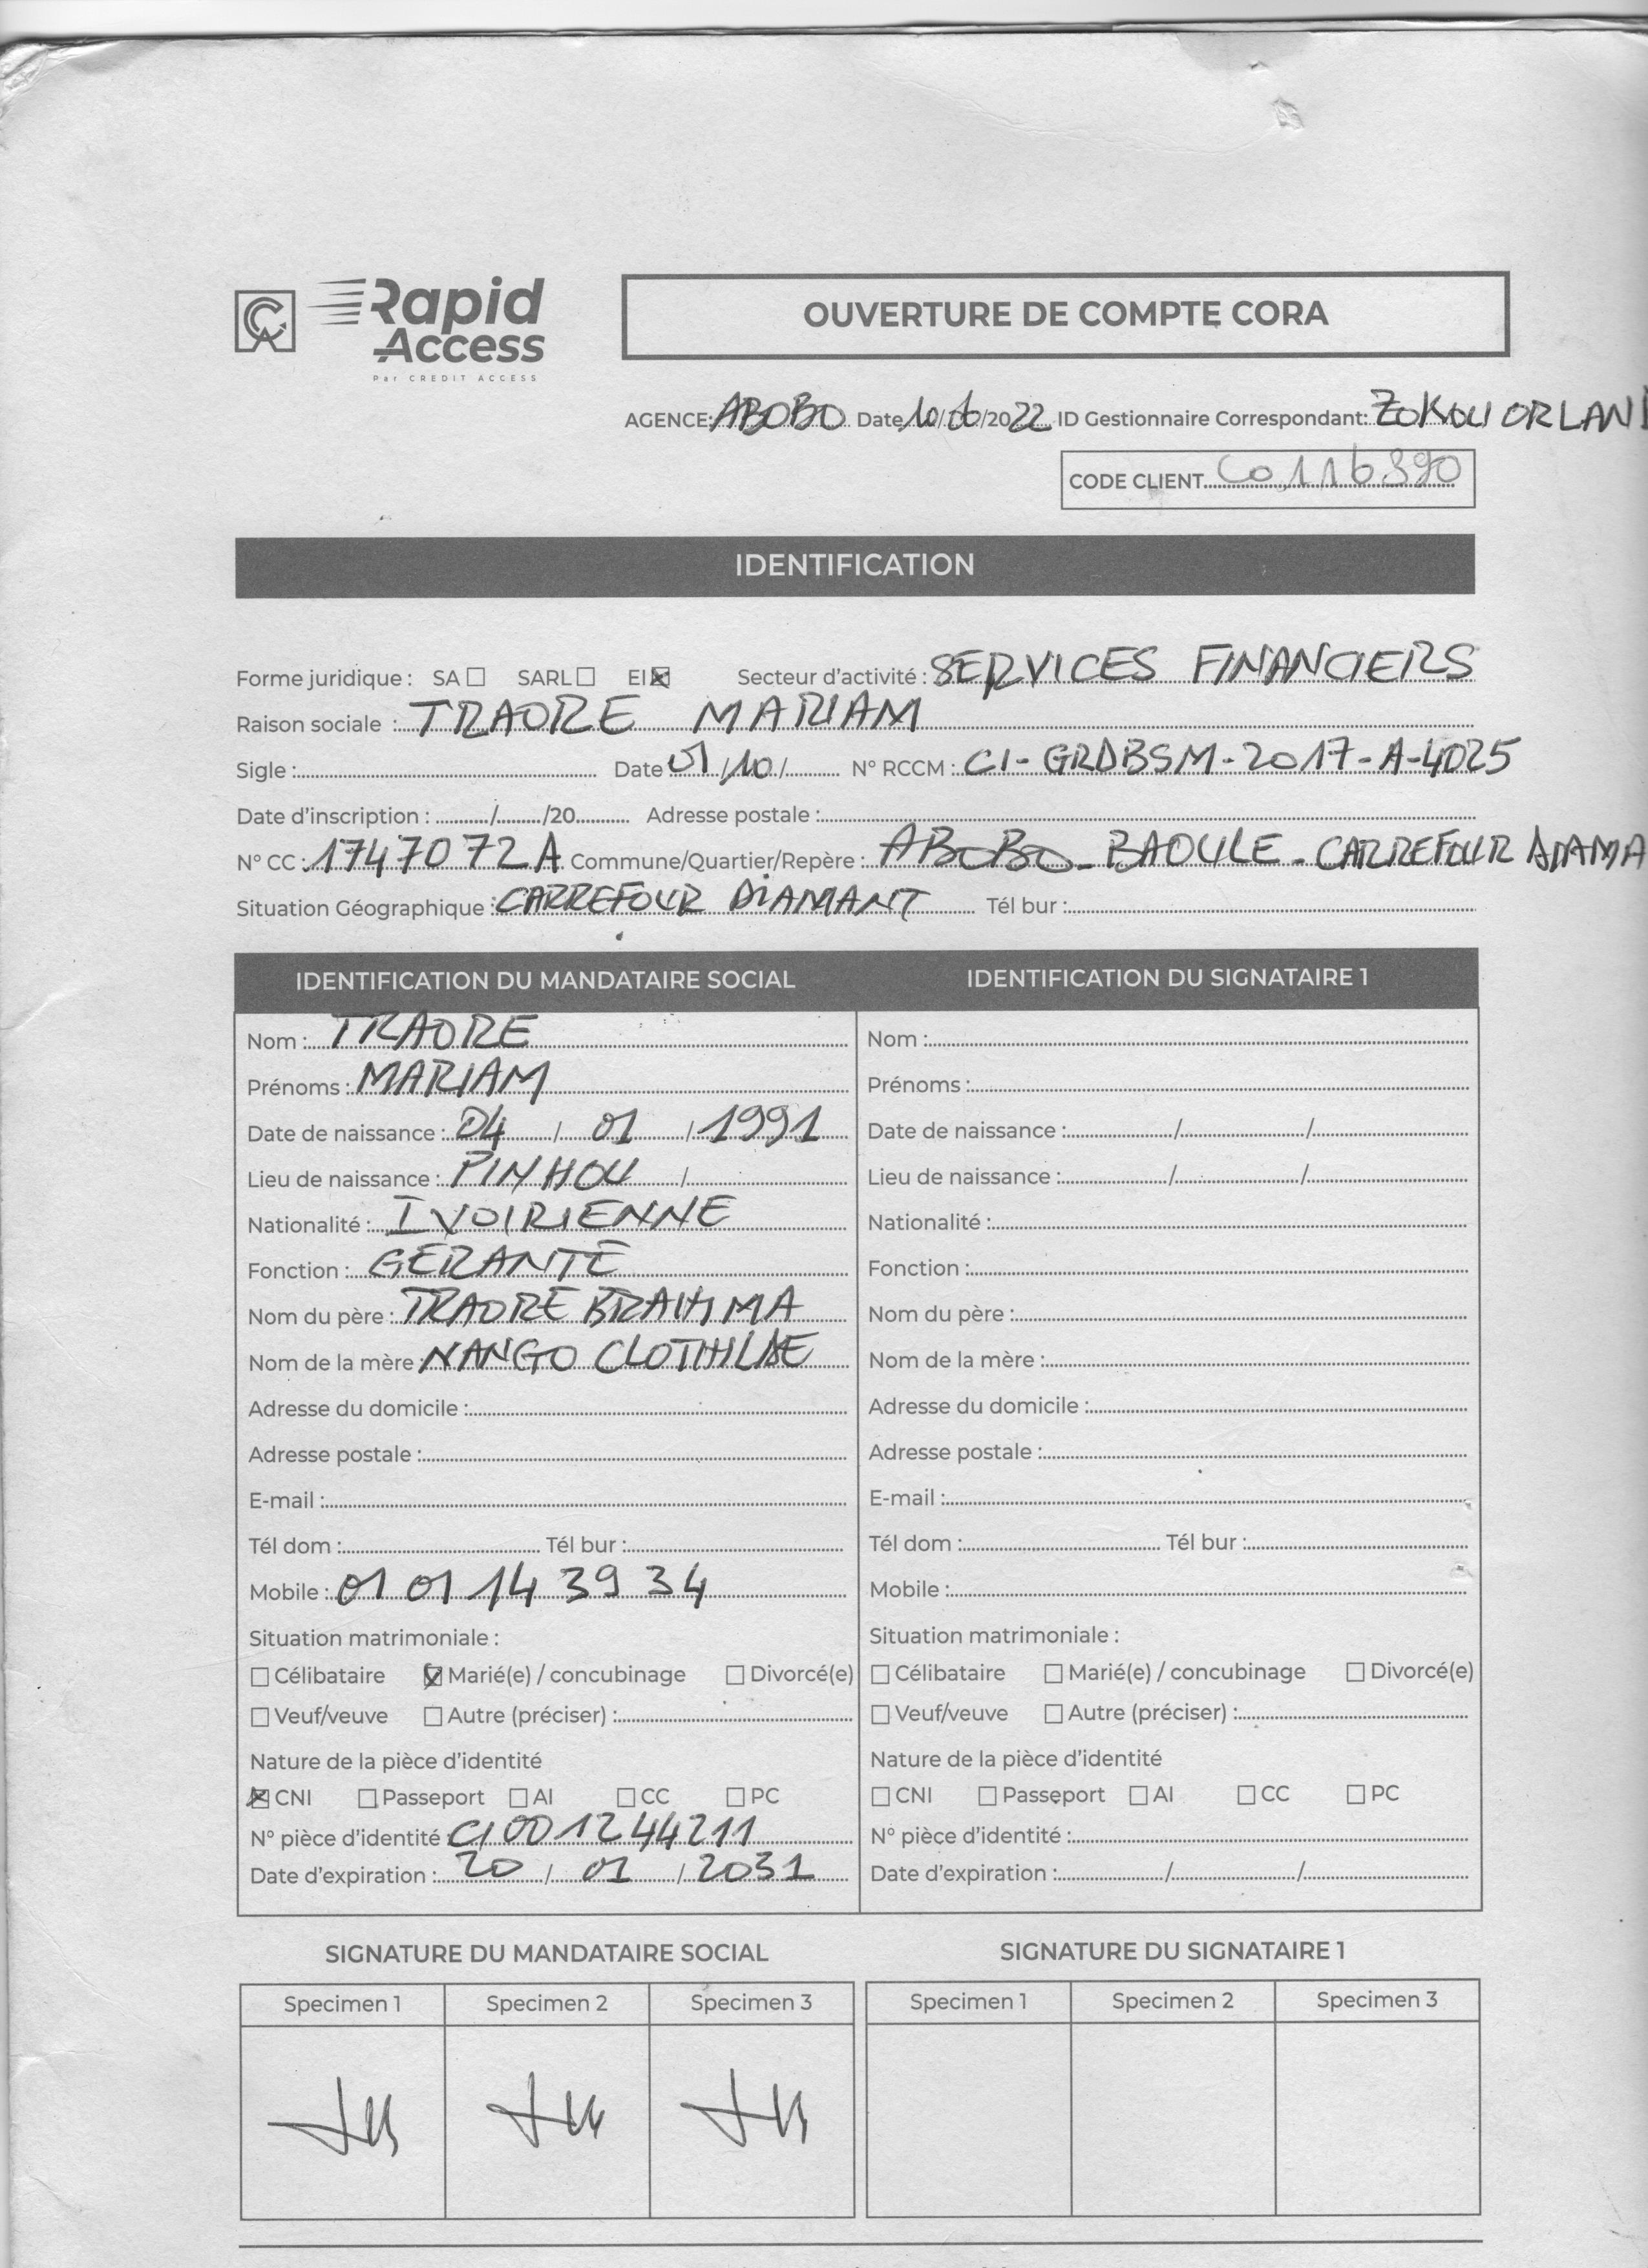 Rapid
Access
Par CREDIT ACCESS
OUVERTURE DE COMPTE CORA
AGENCE: ABOBO Date 10/06/2022 ID Gestionnaire Correspondant: ZOKOU ORLAN
CODE CLIENT C0116390
IDENTIFICATION
Forme juridique : SA ☐ SARL ☐ EI ☒ Secteur d'activité : SERVICES FINANCIERS
Raison sociale : TRAORE MARIAM
Sigle : Date 01/10/ N° RCCM : CI-GRDBSM-2017-A-4025
Date d'inscription : / /20 Adresse postale :
N° CC : 1747072A Commune/Quartier/Repère : ABOBO-BAOULE-CARREFOUR
Situation Géographique : CARREFOUR DIAMANT Tél bur :
IDENTIFICATION DU MANDATAIRE SOCIAL
Nom : TRAORE
Prénoms : MARIAM
Date de naissance : 04 / 01 / 1991
Lieu de naissance : PINHOU /
Nationalité : IVOIRIENNE
Fonction : GERANTE
Nom du père : TRAORE BRAHIMA
Nom de la mère : NANGO CLOTHILDE
Adresse du domicile :
Adresse postale :
E-mail :
Tél dom : Tél bur :
Mobile : 01 01 14 39 34
Situation matrimoniale :
☐ Célibataire ☒ Marié(e) / concubinage ☐ Divorcé(e)
☐ Veuf/veuve ☐ Autre (préciser) :
Nature de la pièce d'identité
☒ CNI ☐ Passeport ☐ AI ☐ CC ☐ PC
N° pièce d'identité : CI001244211
Date d'expiration : 20 / 01 / 2031
IDENTIFICATION DU SIGNATAIRE 1
Nom :
Prénoms :
Date de naissance : / /
Lieu de naissance : / /
Nationalité :
Fonction :
Nom du père :
Nom de la mère :
Adresse du domicile :
Adresse postale :
E-mail :
Tél dom : Tél bur :
Mobile :
Situation matrimoniale :
☐ Célibataire ☐ Marié(e) / concubinage ☐ Divorcé(e)
☐ Veuf/veuve ☐ Autre (préciser) :
Nature de la pièce d'identité
☐ CNI ☐ Passeport ☐ AI ☐ CC ☐ PC
N° pièce d'identité :
Date d'expiration : / /
SIGNATURE DU MANDATAIRE SOCIAL
Specimen 1 Specimen 2 Specimen 3
SIGNATURE DU SIGNATAIRE 1
Specimen 1 Specimen 2 Specimen 3